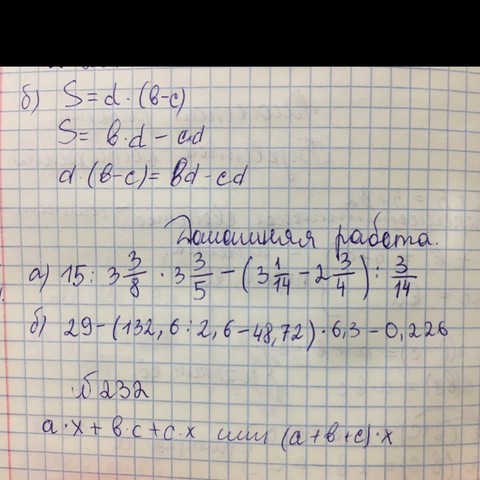 б) S=d·(в-с)
S= в·d - cd
d·(в-с)= вd-cd
Домашняя работа.
а) 15:3 3/8 · 3 3/5 - (3 1/14 - 2 3/4) : 3/14
б) 29-(132,6:2,6-48,72)·6,3-0,226
№232
а·х+в·с+с·х или (а+в+с)·х